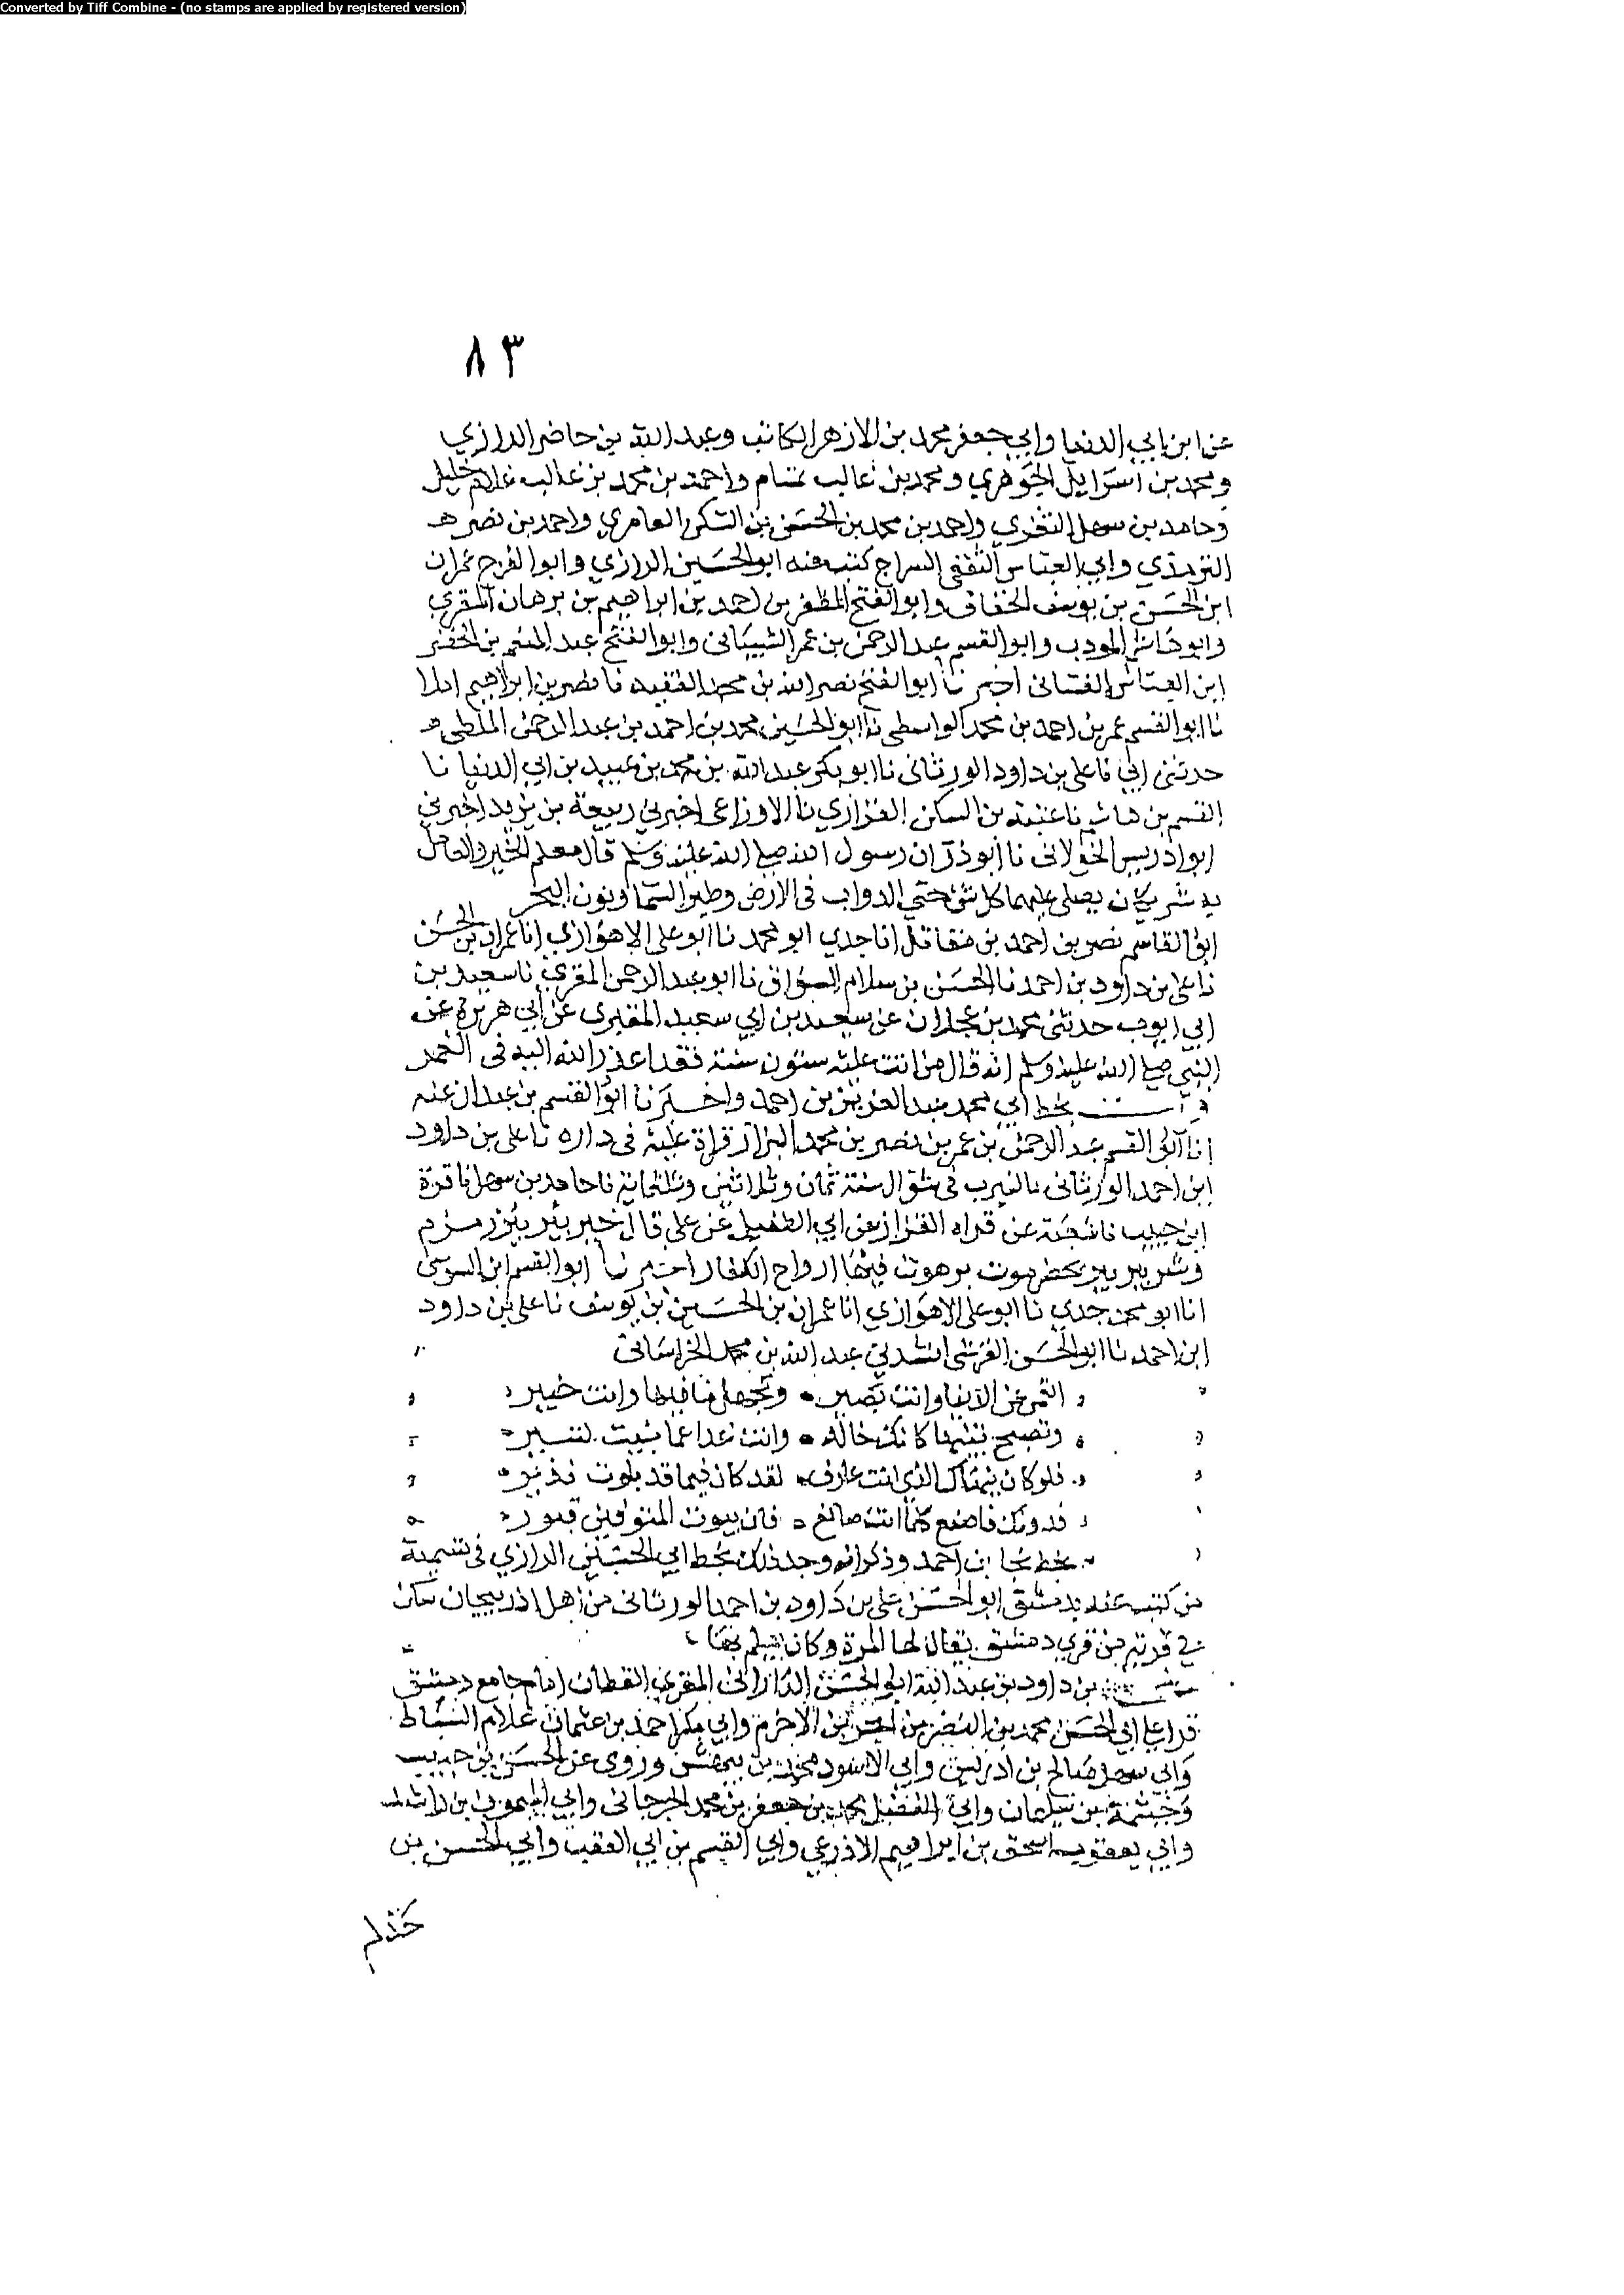 Converted by Tiff Combine - (no stamps are applied by registered version)
٨٣
عن ابن ابي الدنيا وابي جعفر محمد بن الازهر الكاتب وعبد الله بن حاضر الرازي
ومحمد بن اسرايل الجوهري ومحمد بن غالب تمتام واحمد بن محمد بن غالب غلام خليل
وحامد بن سهل الثغري واحمد بن محمد بن الحسن بن السكن العامري واحمد بن نصر
الترمذي وابي العباس الثقفي السراج كتب عنه ابو الحسين الرازي وابو الفرج عمران
ابن الحسن بن يوسف الخفاف وابو الفتح المظفر بن احمد بن ابراهيم بن برهان المقري
وابو هاشم المودب وابو القسم عبد الرحمن بن عمر الشيباني وابو الفتح عبد المنعم بن الخضر
ابن العباس الغساني اخبرنا ابو الفتح نصر الله بن محمد الفقيه نا نصر بن ابراهيم املا
نا ابو القسم عمر بن احمد بن محمد الواسطي نا ابو الحسين محمد بن احمد بن عبد الرحمن الملطي
حدثني ابي نا علي بن داود الورثاني نا ابو بكر عبد الله بن محمد بن عبيد بن ابي الدنيا نا
القسم بن هاشم نا عتبة بن السكن الفزاري نا الاوزاعي اخبرني ربيعة بن يزيد اخبرني
ابو ادريس الخولاني نا ابو ذر ان رسول الله صلى الله عليه وسلم قال معلم الخير والعامل
به شريكان يصلي عليهما كل شئ حتى الدواب في الارض وطير السما ونون البحر
ابو القاسم نصر بن احمد بن مقاتل انا جدي ابو محمد نا ابو علي الاهوازي انا عمران بن الحسن
نا علي بن داود بن احمد نا الحسن بن سلام السواق نا ابو عبد الرحمن المقري نا سعيد بن
ابي ايوب حدثني محمد بن عجلان عن سعيد بن ابي سعيد المقبري عن ابي هريرة عن
النبي صلى الله عليه وسلم انه قال من اتت عليه ستون سنة فقد اعذر الله اليه في العمر
قرأت بخط ابي محمد عبد العزيز بن احمد واخبرنا ابو القسم بن عبدان عنه
انا ابو القسم عبد الرحمن بن عمر بن نصر بن محمد البزاز قراة عليه في داره نا علي بن داود
ابن احمد الورثاني بالنيرب في شوال سنة ثمان وثلاثين وثلثماية نا حامد بن سهل نا قرة
ابن حبيب نا شعبة عن فرات القزاز عن ابي الطفيل عن علي قال خير بئر بئر زمزم
وشر بير بير بحضرموت برهوت فيها ارواح الكفار اخبرنا ابو القسم ابن السوسي
انا ابو محمد جدي نا ابو علي الاهوازي انا عمران بن الحسين بن يوسف نا علي بن داود
ابن احمد نا ابو الحسن القرشي انشدني عبد الله بن محمد الخراساني
عن الدنيا وانت بصير وتجهل ما فيها وانت خبير
وتصبح تبنيها كانك خالد وانت غدا عما بنيت تسير
فلو كان ينهاك الذي انت عارف لقد كان فيما قد بلوت نذير
فدونك فاصنع كلما انت صانع فان بيوت المترفين قبور
بخط نجا بن احمد وذكر انه وجد ذلك بخط ابي الحسين الرازي في تسمية
من كتب عنه بدمشق ابو الحسن علي بن داود بن احمد الورثاني من اهل اذربيجان سكن
في قرية من قرى دمشق يقال لها المزة وكان يعلم بها
بن داود بن عبد الله ابو الحسن الداراني المقري القطان امام جامع دمشق
قرا على ابي الحسن محمد بن النضر بن الحر بن الاخرم وابي بكر احمد بن عثمان غلام السباك
وابي سهل صالح بن ادريس وابي الاسود وروى عن الحسن بن حبيب
وخيثمة بن سليمان وابي الفضل محمد بن جعفر بن محمد الجرجاني وابي الميمون بن راشد
وابي يعقوب اسحق بن ابراهيم الاذرعي وابي القسم بن ابي العقب وابي الحسن بن
حذلم